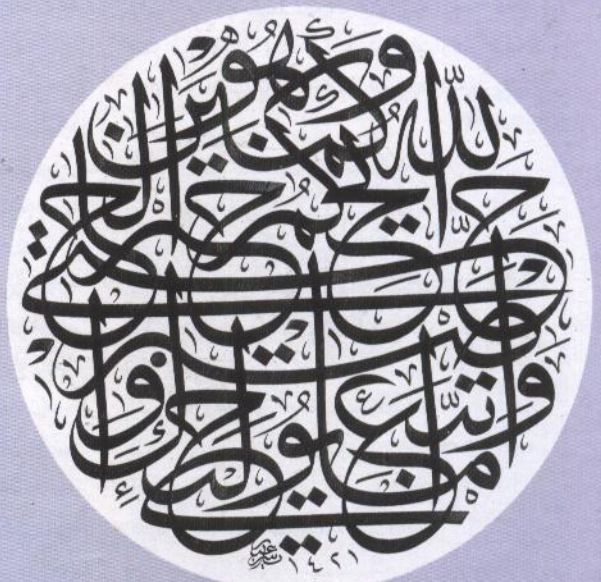 واتبع ما يوحى إليك واصبر حتى يحكم الله وهو خير الحاكمين
١٤٢١